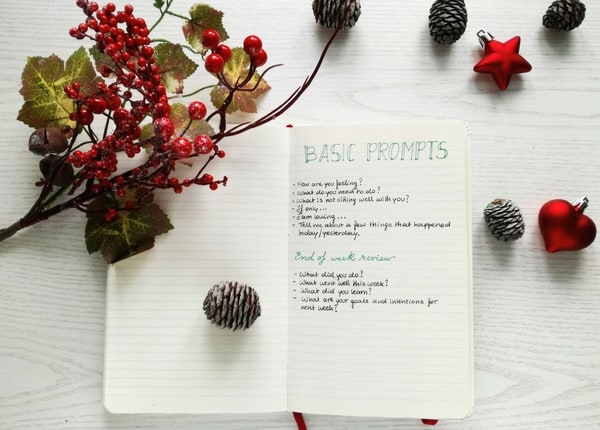 BASIC PROMPTS
- How are you feeling?
- What do you need to do?
- What is not sitting well with you?
- If only...
- I am loving...
- Tell me about a few things that happened
today/yesterday.
End of week review
- What did you do?
- What went well this week?
- What did you learn?
- What are your goals and intentions for
next week?